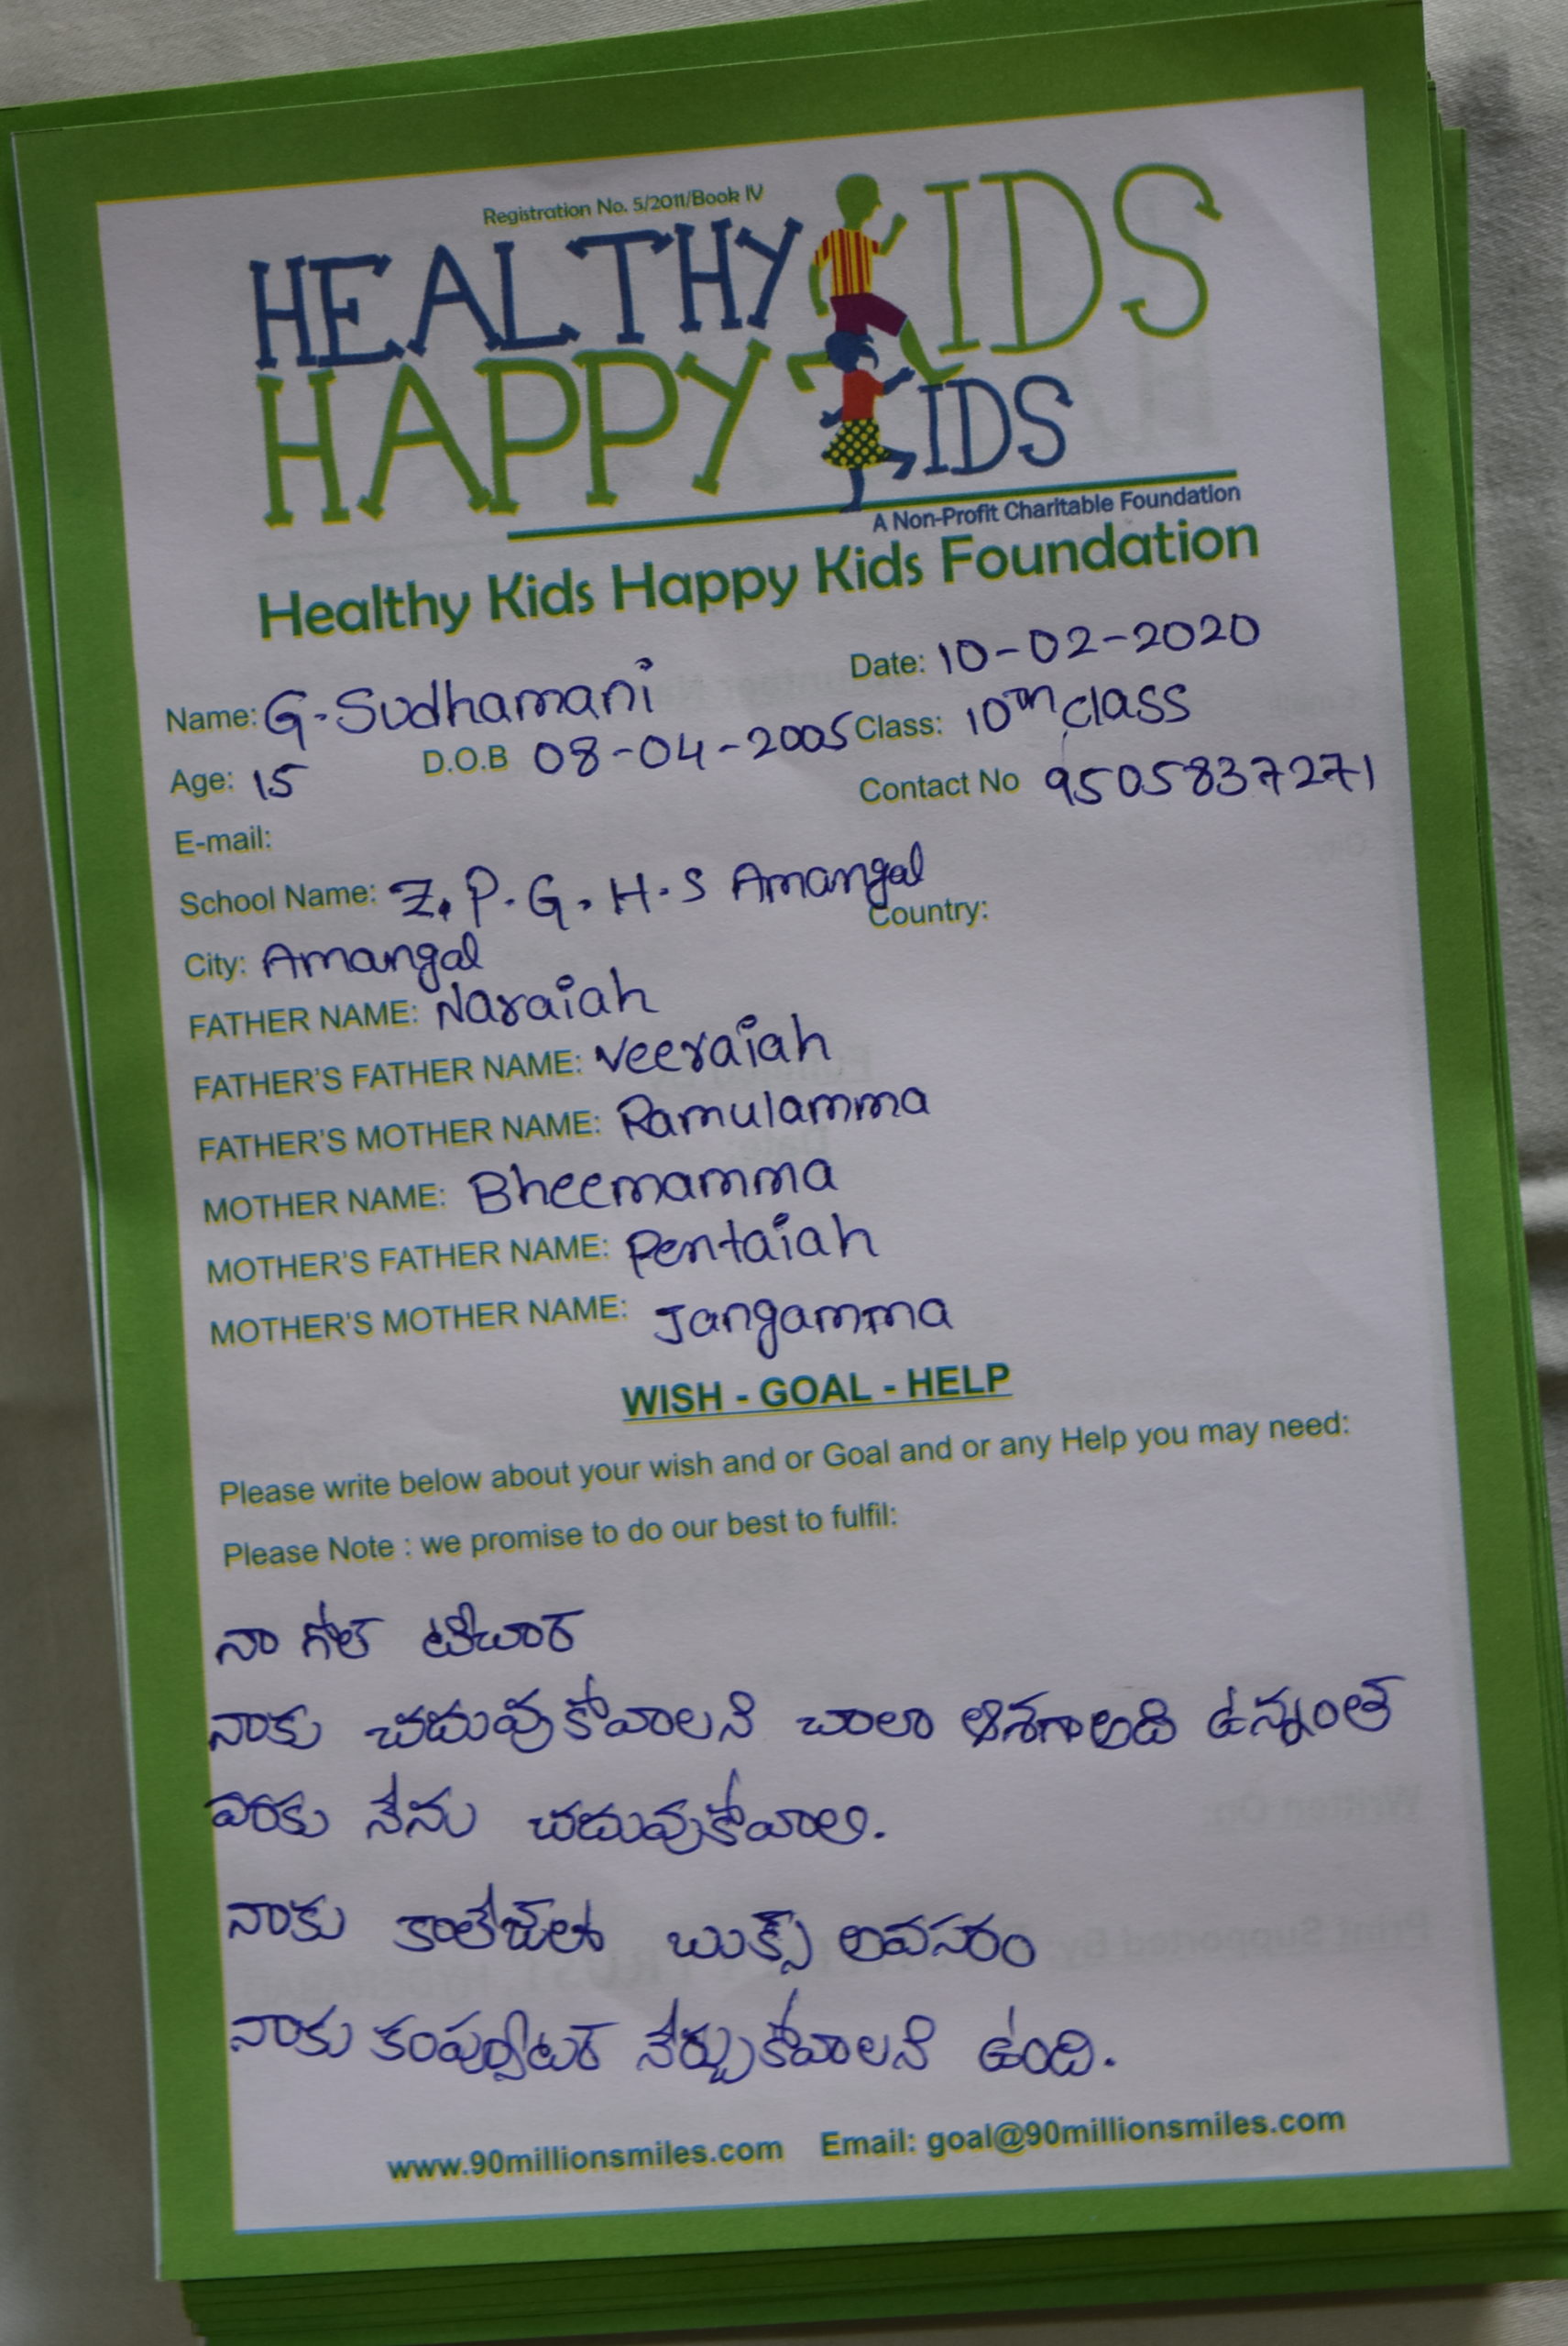 Registration No. 5/2011/Book IV
HEALTHY KIDS
HAPPY KIDS
A Non-Profit Charitable Foundation
Healthy Kids Happy Kids Foundation
Name: G. Sudhamani Date: 10-02-2020
Age: 15 D.O.B 08-04-2005 Class: 10th class
E-mail: Contact No 9505837271
School Name: Z. P. G. H. S Amangal
City: Amangal Country:
FATHER NAME: Naraiah
FATHER'S FATHER NAME: Veeraiah
FATHER'S MOTHER NAME: Ramulamma
MOTHER NAME: Bheemamma
MOTHER'S FATHER NAME: Pentaiah
MOTHER'S MOTHER NAME: Jangamma
WISH - GOAL - HELP
Please write below about your wish and or Goal and or any Help you may need:
Please Note : we promise to do our best to fulfil:
నా గోల్ టీచార్
నాకు చదువుకోవాలని చాలా ఆశగాఉంది ఉన్నంత
వరకు నేను చదువుకోవాలి.
నాకు కాలేజ్‌లో బుక్స్ అవసరం
నాకు కంప్యూటర్ నేర్చుకోవాలని ఉంది.
www.90millionsmiles.com Email: goal@90millionsmiles.com